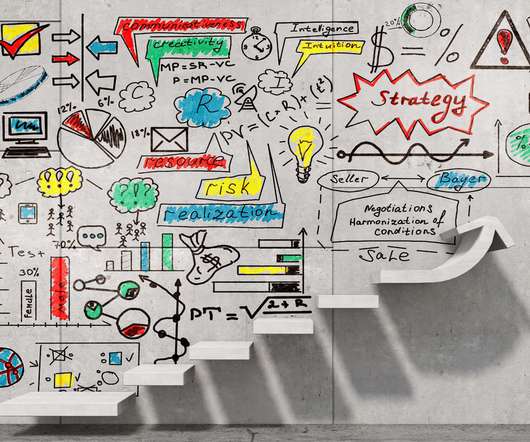 communicativeness
creativity
MP=SR-VC
P=MP-VC
Intelligence
Intuition
20%
$ %
!
Strategy
12%
6%
18%
C
R
I
PV=(C+R)+(t²)
resource
risk
realization
Seller
Bayer
Negotiations
Harmonization of
conditions
Sale
???
$
Test
70%
30%
Female
Male
PT=√2+R